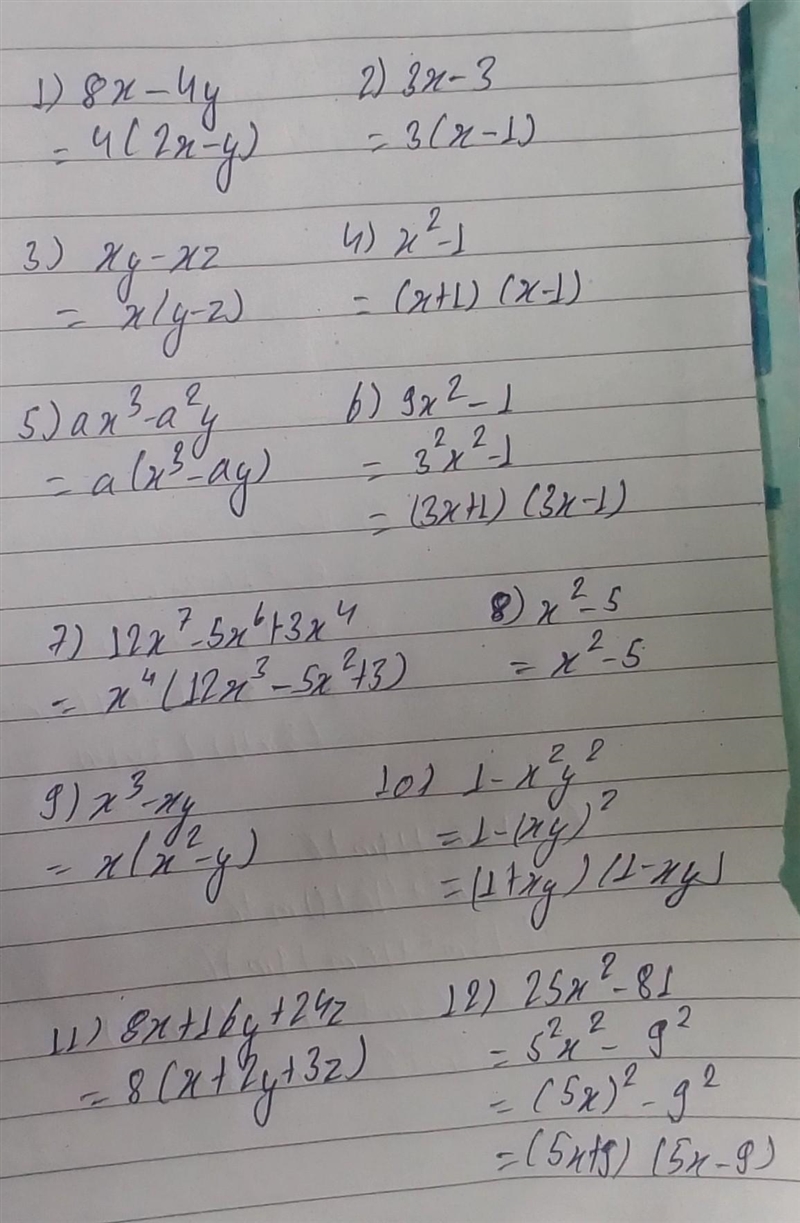 1) 8x - 4y
= 4(2x - y)
2) 3x - 3
= 3(x - 1)
3) xy - xz
= x(y - z)
4) x² - 1
= (x+1) (x-1)
5) ax³ - a²y
= a(x³ - ay)
6) 9x² - 1
= 3²x² - 1
= (3x+1) (3x-1)
7) 12x⁷ - 5x⁶ + 3x⁴
= x⁴(12x³ - 5x² + 3)
8) x² - 5
= x² - 5
9) x³ - xy
= x(x² - y)
10) 1 - x²y²
= 1 - (xy)²
= (1 + xy) (1 - xy)
11) 8x + 16y + 24z
= 8(x + 2y + 3z)
12) 25x² - 81
= 5²x² - 9²
= (5x)² - 9²
= (5x+9) (5x-9)